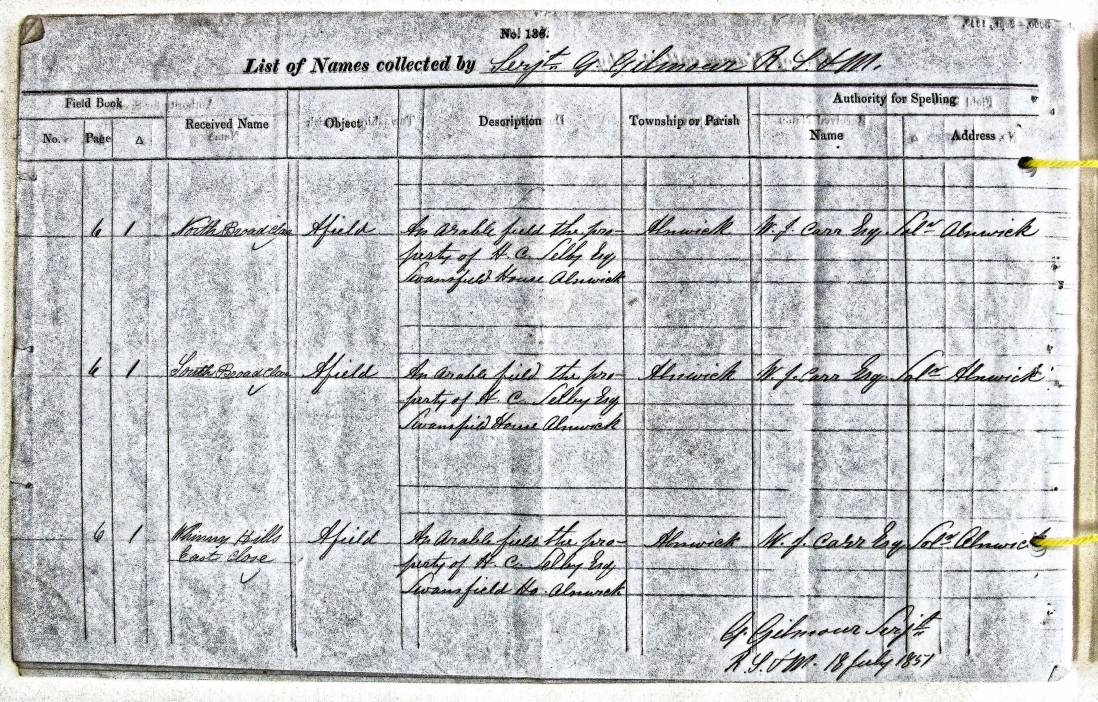 No. 136.
List of Names collected by Serjt. G. Gilmour R. S. & M.
Field Book
Authority for Spelling
No. Page Δ Received Name Object Description Township or Parish Name Address
6 1 North Broad Close A field An arable field the pro- Alnwick W. J. Carr Esq Solr Alnwick
perty of H. C. Selby Esq
Swansfield House Alnwick
6 1 South Broad Close A field An arable field the pro- Alnwick W. J. Carr Esq Solr Alnwick
perty of H. C. Selby Esq
Swansfield House Alnwick
6 1 Whinny Hills A field An arable field the pro- Alnwick W. J. Carr Esq Solr Alnwick
East Close perty of H. C. Selby Esq
Swansfield Ho. Alnwick
G. Gilmour Serjt
R. S. & M. 18 July 1851